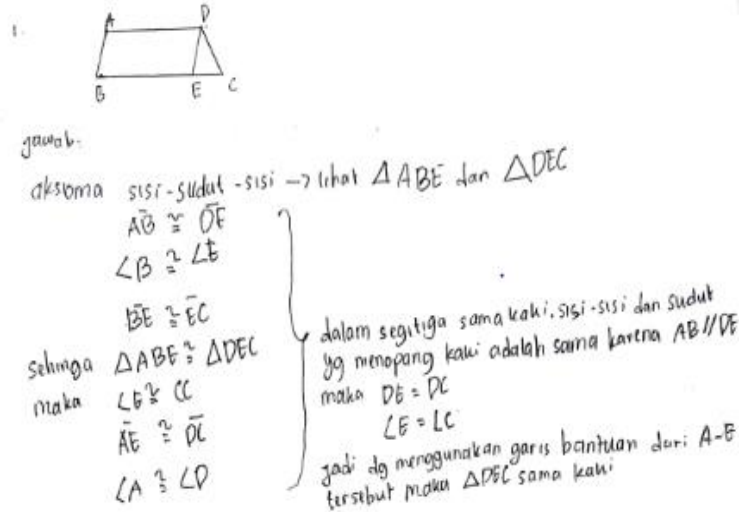 1.
A D
B E C
Jawab:
aksioma sisi-sudut-sisi → lihat △ABE dan △DEC
AB ≅ DE
∠B ≅ ∠E
BE ≅ EC
Sehingga △ABE ≅ △DEC
maka ∠E ≅ ∠C
AE ≅ DC
∠A ≅ ∠D
dalam segitiga sama kaki, sisi-sisi dan sudut
yg menopang kaki adalah sama karena AB//DE
maka DE = DC
∠E = ∠C
Jadi dg menggunakan garis bantuan dari A-E
tersebut maka △DEC sama kaki